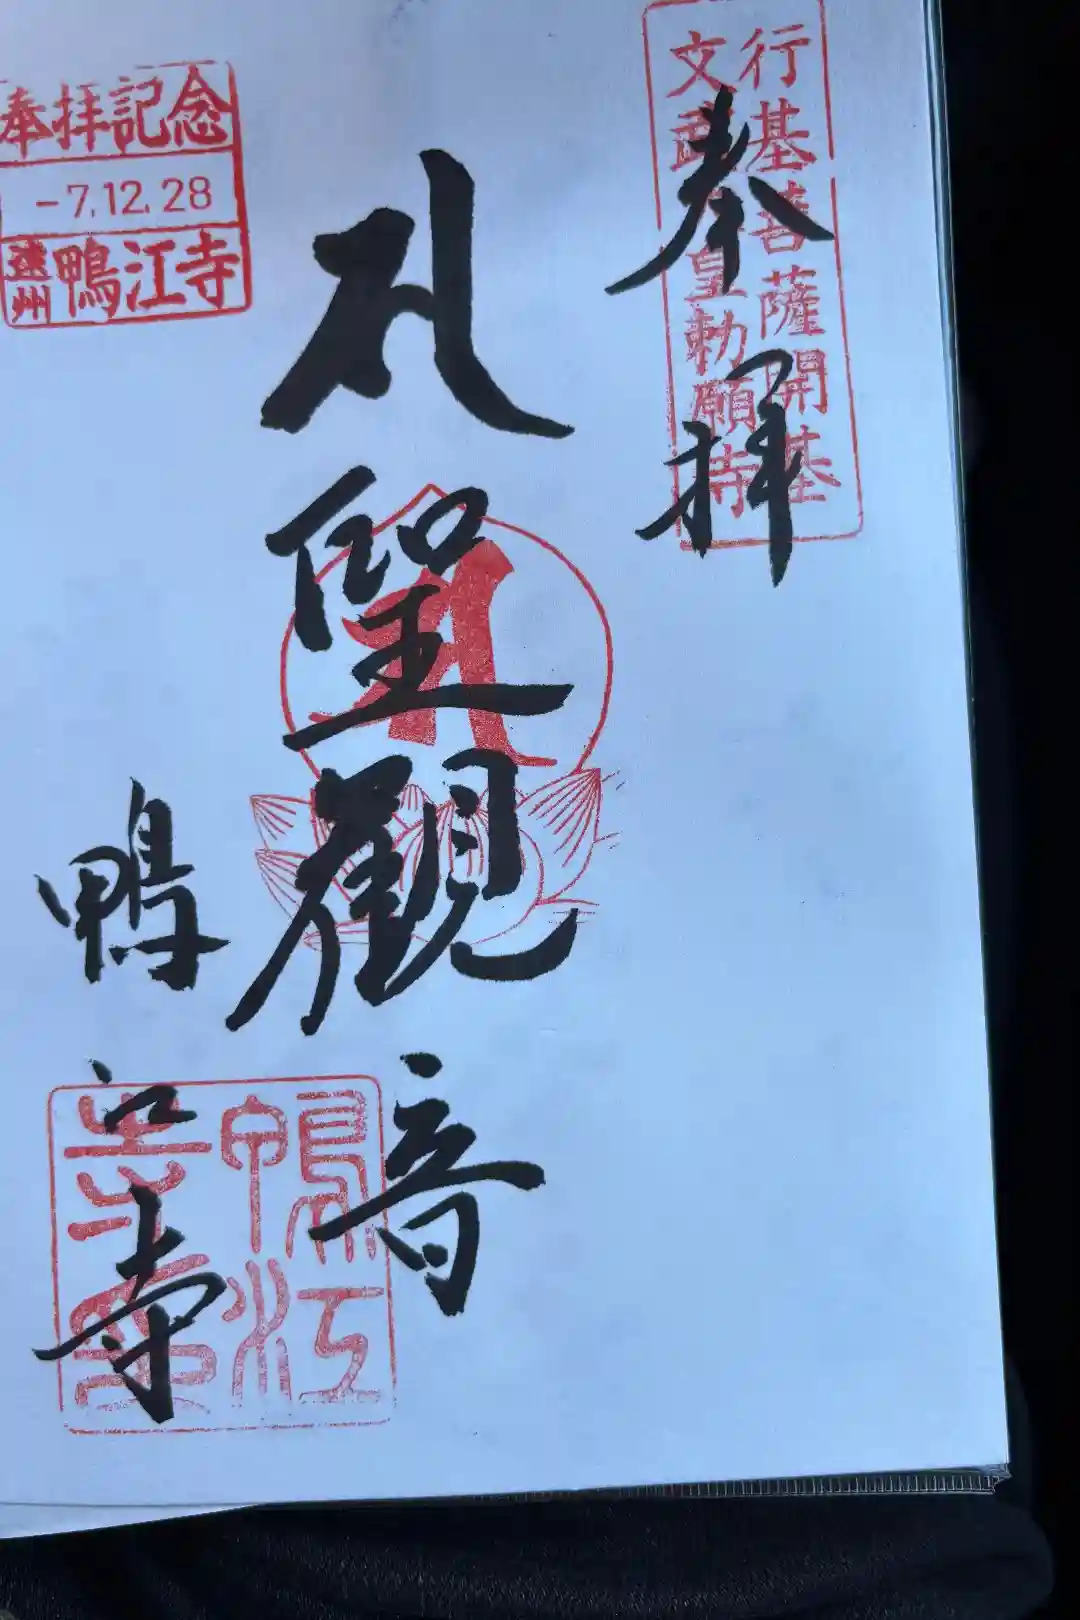 行基菩薩開基
文武天皇勅願寺
奉拝
聖觀音
鴨江寺
奉拝記念
-7.12.28
遠州 鴨江寺
鴨江
寺印